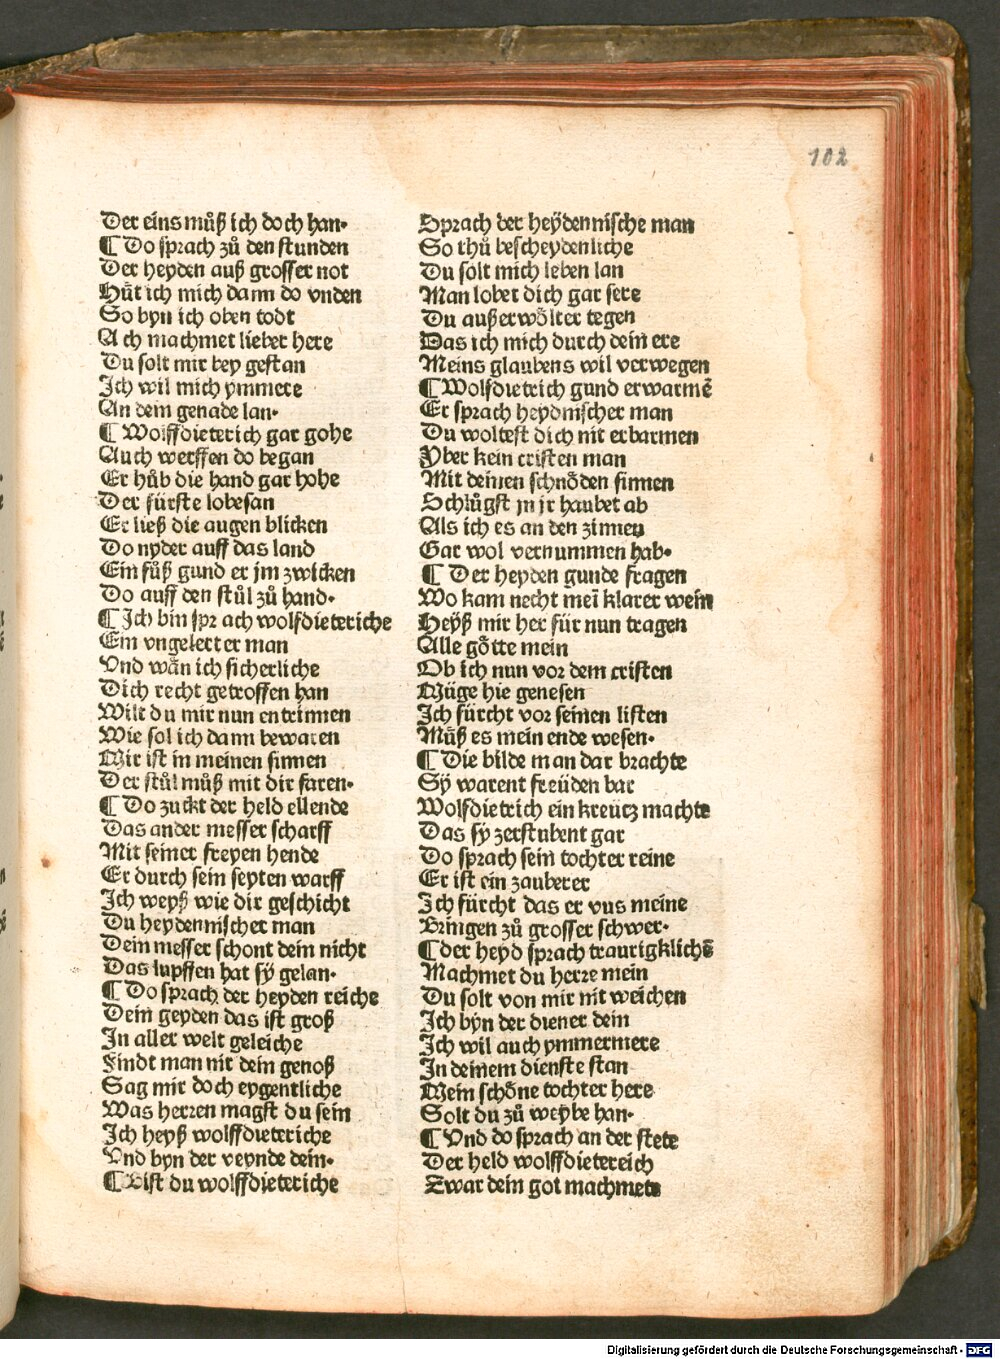 102
Der eins můß ich doch han·
¶ Do sprach zů den stunden
Der heyden auß grosser not
Hůt ich mich dann do vnden
So byn ich oben todt
Ach machmet lieber here
Du solt mir bey gestan
Ich wil mich ymmere
An dein genade lan·
¶ Wolffdieterich gar gohe
Auch werffen do began
Er hůb die hand gar hohe
Der fürste lobesan
Er ließ die augen blicken
Do nyder auff das land
Ein fůß gund er jm zwicken
Do auff den stůl zů hand·
¶ Ich bin sprach wolfdieteriche
Ein vngelerter man
Vnd wän ich sicherliche
Dich recht getroffen han
Wilt du mir nun entrinnen
Wie sol ich dann bewaren
Mir ist in meinen sinnen
Der stůl můß mit dir faren·
¶ Do zuckt der held ellende
Das ander messer scharff
Mit seiner freyen hende
Er durch sein seyten warff
Ich weyß wie dir geschicht
Du heydennischer man
Dein messer schont dein nicht
Das lupffen hat sÿ gelan·
¶ Do sprach der heyden reiche
Dein geyden das ist groß
In aller welt geleiche
Findt man nit dein genoß
Sag mir doch eygentliche
Was herren magst du sein
Ich heyß wolffdieteriche
Vnd byn der veynde dein·
¶ Bist du wolffdieteriche
Sprach der heÿdennische man
So thů bescheydenliche
Du solt mich leben lan
Man lobet dich gar sere
Du außerwölter tegen
Das ich mich durch dein ere
Meins glaubens wil verwegen
¶ Wolfdietrich gund erwarmē
Er sprach heydnischer man
Du woltest dich nit erbarmen
Yber kein cristen man
Mit deinen schnöden sinnen
Schlůgst jn jr haubet ab
Als ich es an den zinnen
Gar wol vernummen hab·
¶ Der heyden gunde fragen
Wo kam necht mei klarer wein
Heÿß mir her für nun tragen
Alle götte mein
Ob ich nun vor dem cristen
Müge hie genesen
Ich fürcht vor seinen listen
Můß es mein ende wesen·
¶ Die bilde man dar brachte
Sÿ warent freüden bar
Wolfdietrich ein kreütz machte
Das sÿ zerstubent gar
Do sprach sein tochter reine
Er ist ein zauberer
Ich fürcht das er vns meine
Bringen zů grosser schwer·
¶ der heyd sprach traurigklichē
Machmet du herre mein
Du solt von mir nit weichen
Ich bÿn der diener dein
Ich wil auch ymmermere
In deinem dienste stan
Mein schöne tochter here
Solt du zů weybe han·
¶ Vnd do sprach an der stete
Der held wolffdietereich
Zwar dein got machmete
Digitalisierung gefördert durch die Deutsche Forschungsgemeinschaft - DFG